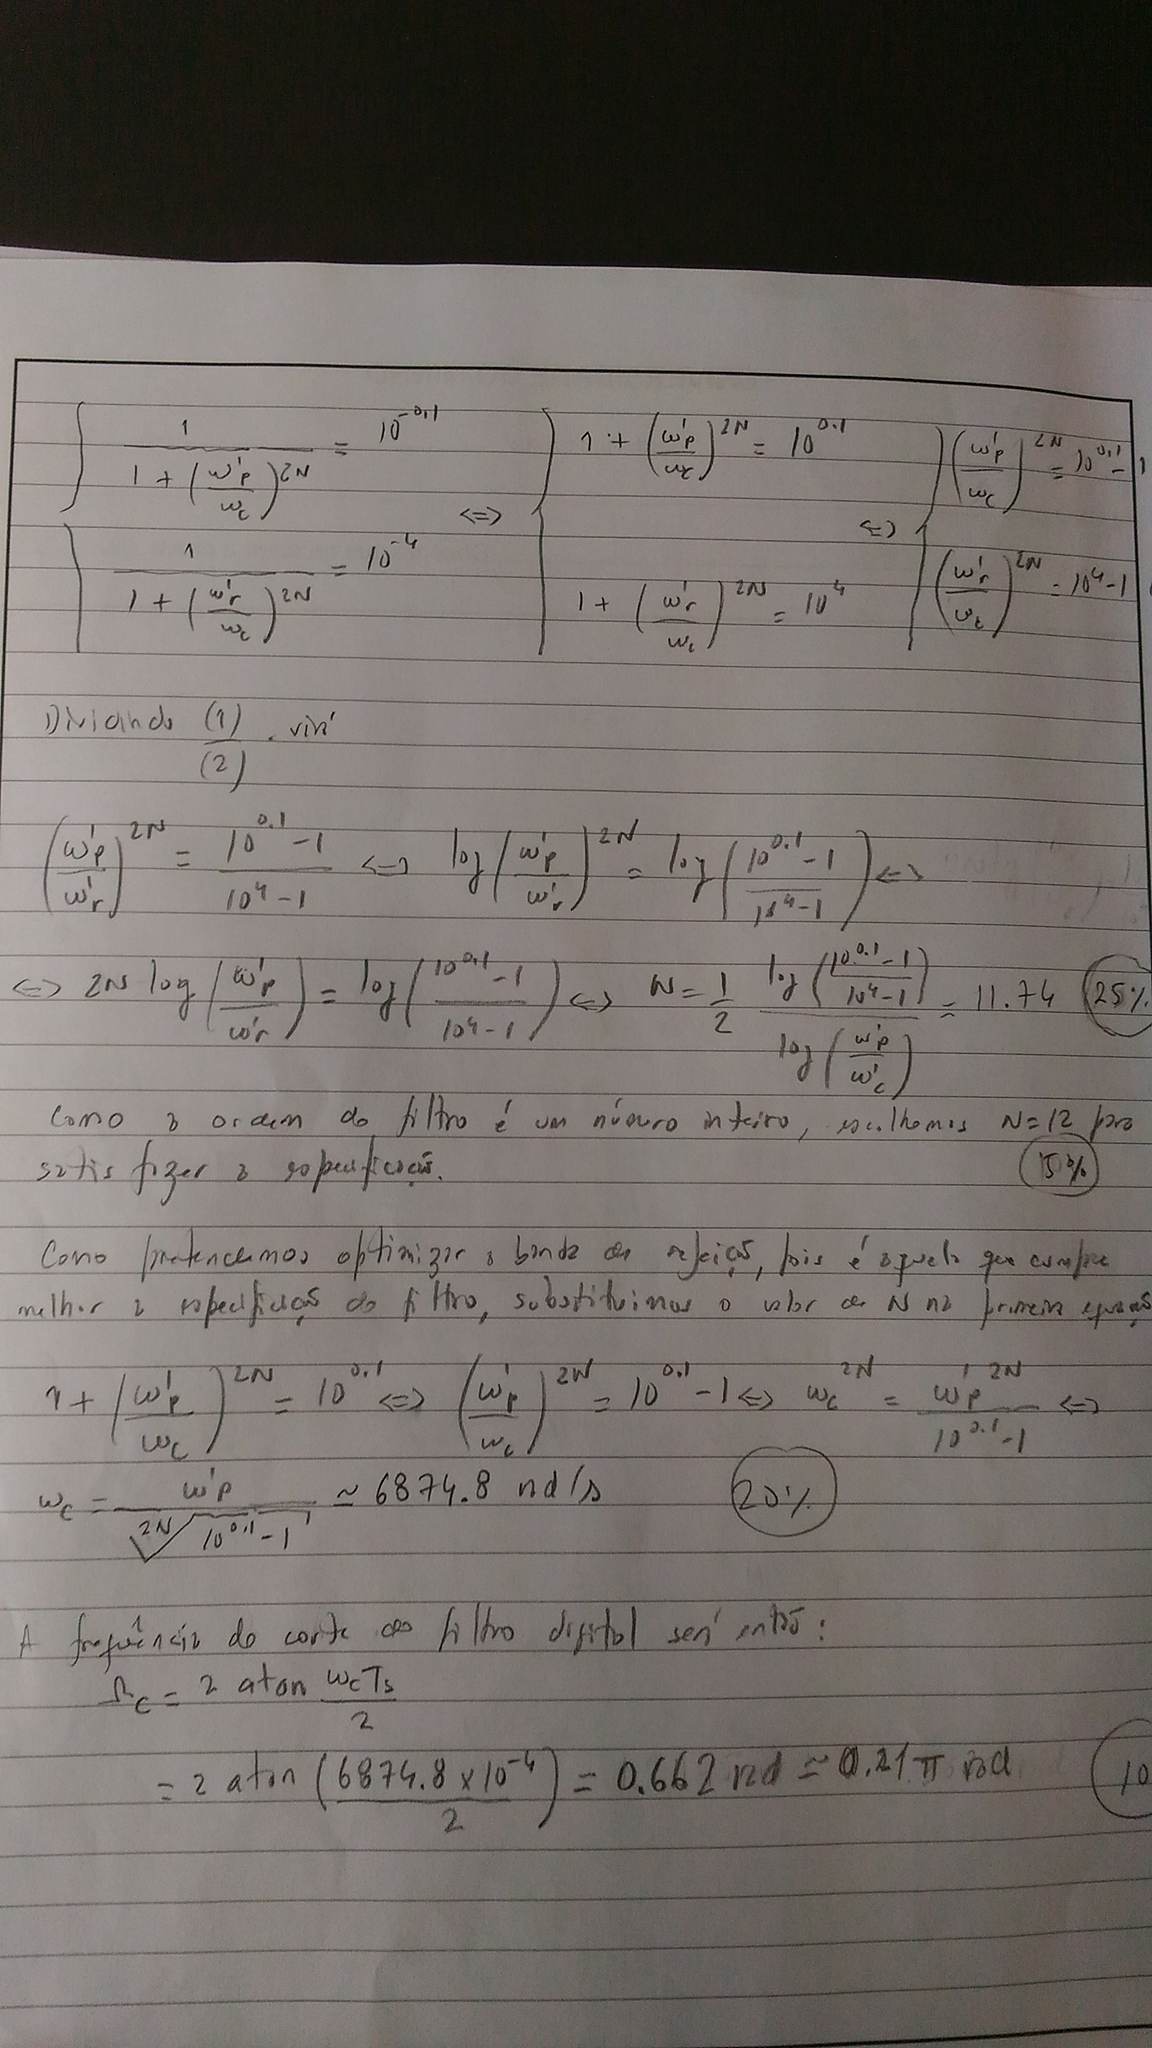 { 1 / (1 + (ω'p/ωc)^2N) = 10^-0,1 <=> { 1 + (ω'p/ωc)^2N = 10^0.1 <=> { (ω'p/ωc)^2N = 10^0,1 - 1
{ 1 / (1 + (ω'r/ωc)^2N) = 10^-4 { 1 + (ω'r/ωc)^2N = 10^4 { (ω'r/ωc)^2N = 10^4 - 1
Dividindo (1)/(2), virá
(ω'p/ω'r)^2N = (10^0.1 - 1)/(10^4 - 1) <=> log (ω'p/ω'r)^2N = log ((10^0.1 - 1)/(10^4 - 1)) <=>
<=> 2N log (ω'p/ω'r) = log ((10^0,1 - 1)/(10^4 - 1)) <=> N = 1/2 log ((10^0.1 - 1)/(10^4 - 1)) / log (ω'p/ω'c) = 11.74 25%
Como a ordem do filtro é um número inteiro, escolhemos N=12 pra
satisfazer a especificação. 15%
Como pretendemos optimizar a banda de rejeição, pois é aquela que cumpre
melhor a especificação do filtro, substituimos o valor de N na primeira equação
1 + (ω'p/ωc)^2N = 10^0.1 <=> (ω'p/ωc)^2N = 10^0.1 - 1 <=> ωc^2N = ω'p^2N / (10^0.1 - 1) <=>
ωc = ω'p / 2N√(10^0.1 - 1) ≃ 6874.8 rad/s 20%
A frequência de corte do filtro digital será então:
Ωc = 2 atan ωcTs/2
= 2 atan (6874.8 x 10^-4 / 2) = 0.662 rad ≃ 0.21 π rad 10